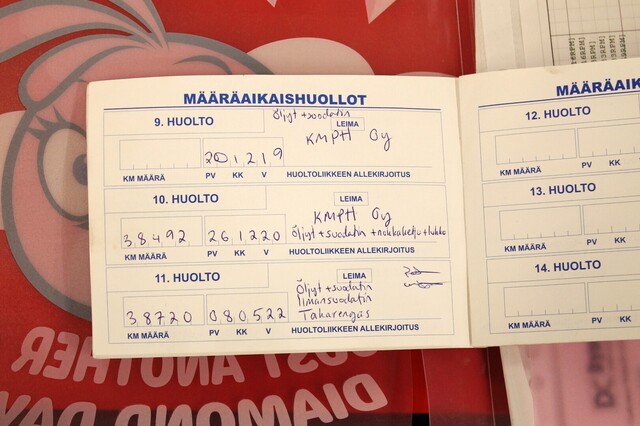 MÄÄRÄAIKAISHUOLLOT
9. HUOLTO
Öljyt + suodatin
LEIMA
KMPH Oy
20 12 19
KM MÄÄRÄ PV KK V HUOLTOLIIKKEEN ALLEKIRJOITUS
10. HUOLTO
LEIMA
KMPH Oy
38492 26 12 20
Öljyt + suodatin + nokkaketju + lukko
KM MÄÄRÄ PV KK V HUOLTOLIIKKEEN ALLEKIRJOITUS
11. HUOLTO
LEIMA
Öljyt + suodatin
Ilmansuodatin
38720 080522
Takarengas
KM MÄÄRÄ PV KK V HUOLTOLIIKKEEN ALLEKIRJOITUS
MÄÄRÄA
12. HUOLTO
KM MÄÄRÄ PV KK V
13. HUOLTO
KM MÄÄRÄ PV KK V
14. HUOLTO
KM MÄÄRÄ PV KK V
JUST ANOTHER
DIAMOND DAY